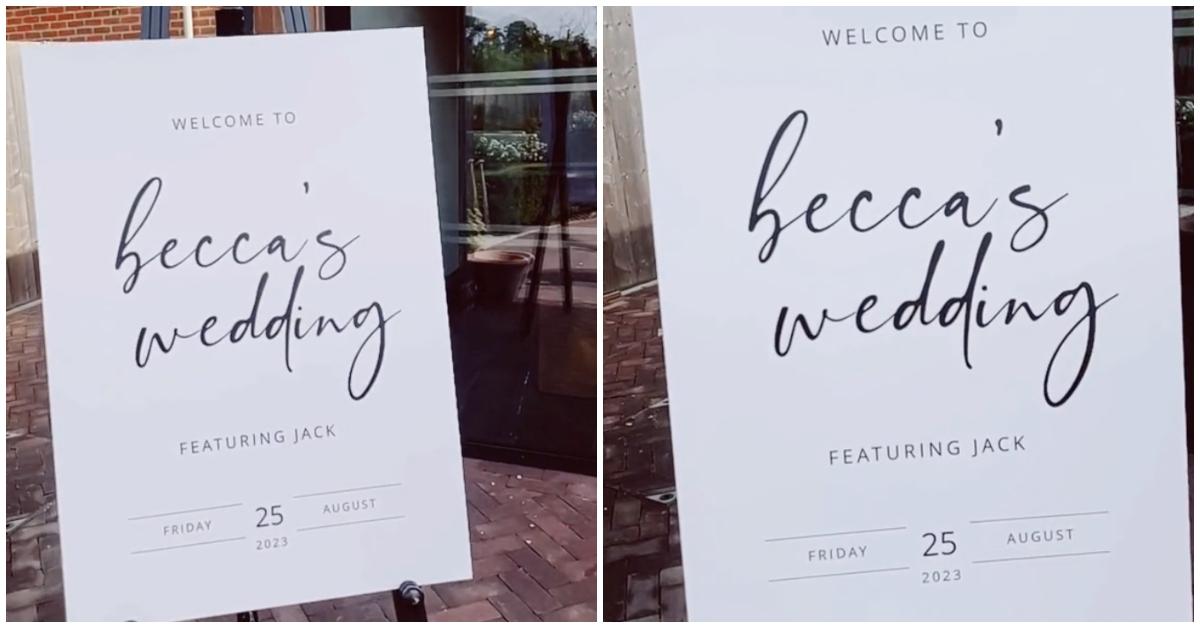 WELCOME TO
becca's
wedding
FEATURING JACK
FRIDAY 25 AUGUST
2023
WELCOME TO
becca's
wedding
FEATURING JACK
FRIDAY 25 AUGUST
2023